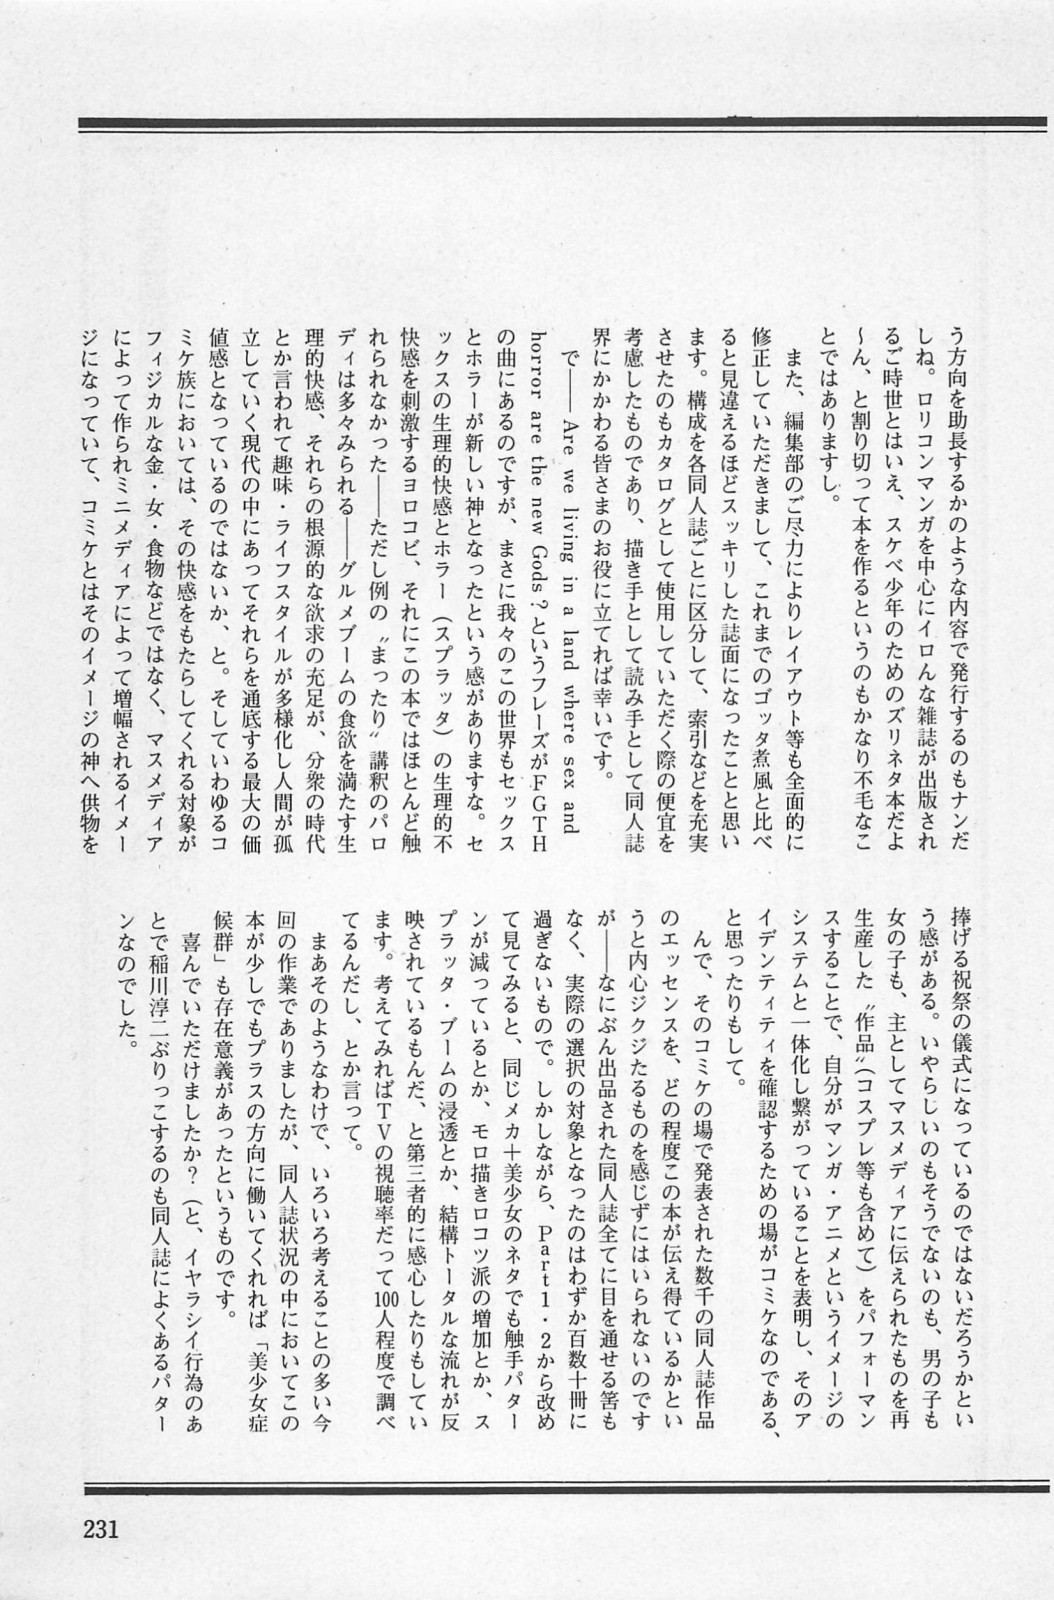 う方向を助長するかのような内容で発行するのもナンだ
しね。ロリコンマンガを中心にイロんな雑誌が出版され
るご時世とはいえ、スケベ少年のためのズリネタ本だよ
〜ん、と割り切って本を作るというのもかなり不毛なこ
とではありますし。
また、編集部のご尽力によりレイアウト等も全面的に
修正していただきまして、これまでのゴッタ煮風と比べ
ると見違えるほどスッキリした誌面になったことと思い
ます。構成を各同人誌ごとに区分して、索引などを充実
させたのもカタログとして使用していただく際の便宜を
考慮したものであり、描き手として読み手として同人誌
界にかかわる皆さまのお役に立てれば幸いです。
で――Are we living in a land where sex and
horror are the new Gods？というフレーズがＦＧＴＨ
の曲にあるのですが、まさに我々のこの世界もセックス
とホラーが新しい神となったという感がありますな。セ
ックスの生理的快感とホラー（スプラッタ）の生理的不
快感を刺激するヨロコビ、それにこの本ではほとんど触
れられなかった――ただし例の〝まったり〟講釈のパロ
ディは多々みられる――グルメブームの食欲を満たす生
理的快感、それらの根源的な欲求の充足が、分衆の時代
とか言われて趣味・ライフスタイルが多様化し人間が孤
立していく現代の中にあってそれらを通底する最大の価
値感となっているのではないか、と。そしていわゆるコ
ミケ族においては、その快感をもたらしてくれる対象が
フィジカルな金・女・食物などではなく、マスメディア
によって作られミニメディアによって増幅されるイメー
ジになっていて、コミケとはそのイメージの神へ供物を
捧げる祝祭の儀式になっているのではないだろうかとい
う感がある。いやらしいのもそうでないのも、男の子も
女の子も、主としてマスメディアに伝えられたものを再
生産した〝作品〟（コスプレ等も含めて）をパフォーマン
スすることで、自分がマンガ・アニメというイメージの
システムと一体化し繋がっていることを表明し、そのア
イデンティティを確認するための場がコミケなのである、
と思ったりもして。
んで、そのコミケの場で発表された数千の同人誌作品
のエッセンスを、どの程度この本が伝え得ているかとい
うと内心ジクジたるものを感じずにはいられないのです
が――なにぶん出品された同人誌全てに目を通せる筈も
なく、実際の選択の対象となったのはわずか百数十冊に
過ぎないもので。しかしながら、Part1・2から改め
て見てみると、同じメカ＋美少女のネタでも触手パター
ンが減っているとか、モロ描きロコツ派の増加とか、ス
プラッタ・ブームの浸透とか、結構トータルな流れが反
映されているもんだ、と第三者的に感心したりもしてい
ます。考えてみればＴＶの視聴率だって100人程度で調べ
てるんだし、とか言って。
まあそのようなわけで、いろいろ考えることの多い今
回の作業でありましたが、同人誌状況の中においてこの
本が少しでもプラスの方向に働いてくれれば「美少女症
候群」も存在意義があったというものです。
喜んでいただけましたか？（と、イヤラシイ行為のあ
とで稲川淳二ぶりっこするのも同人誌によくあるパター
ンなのでした。
231